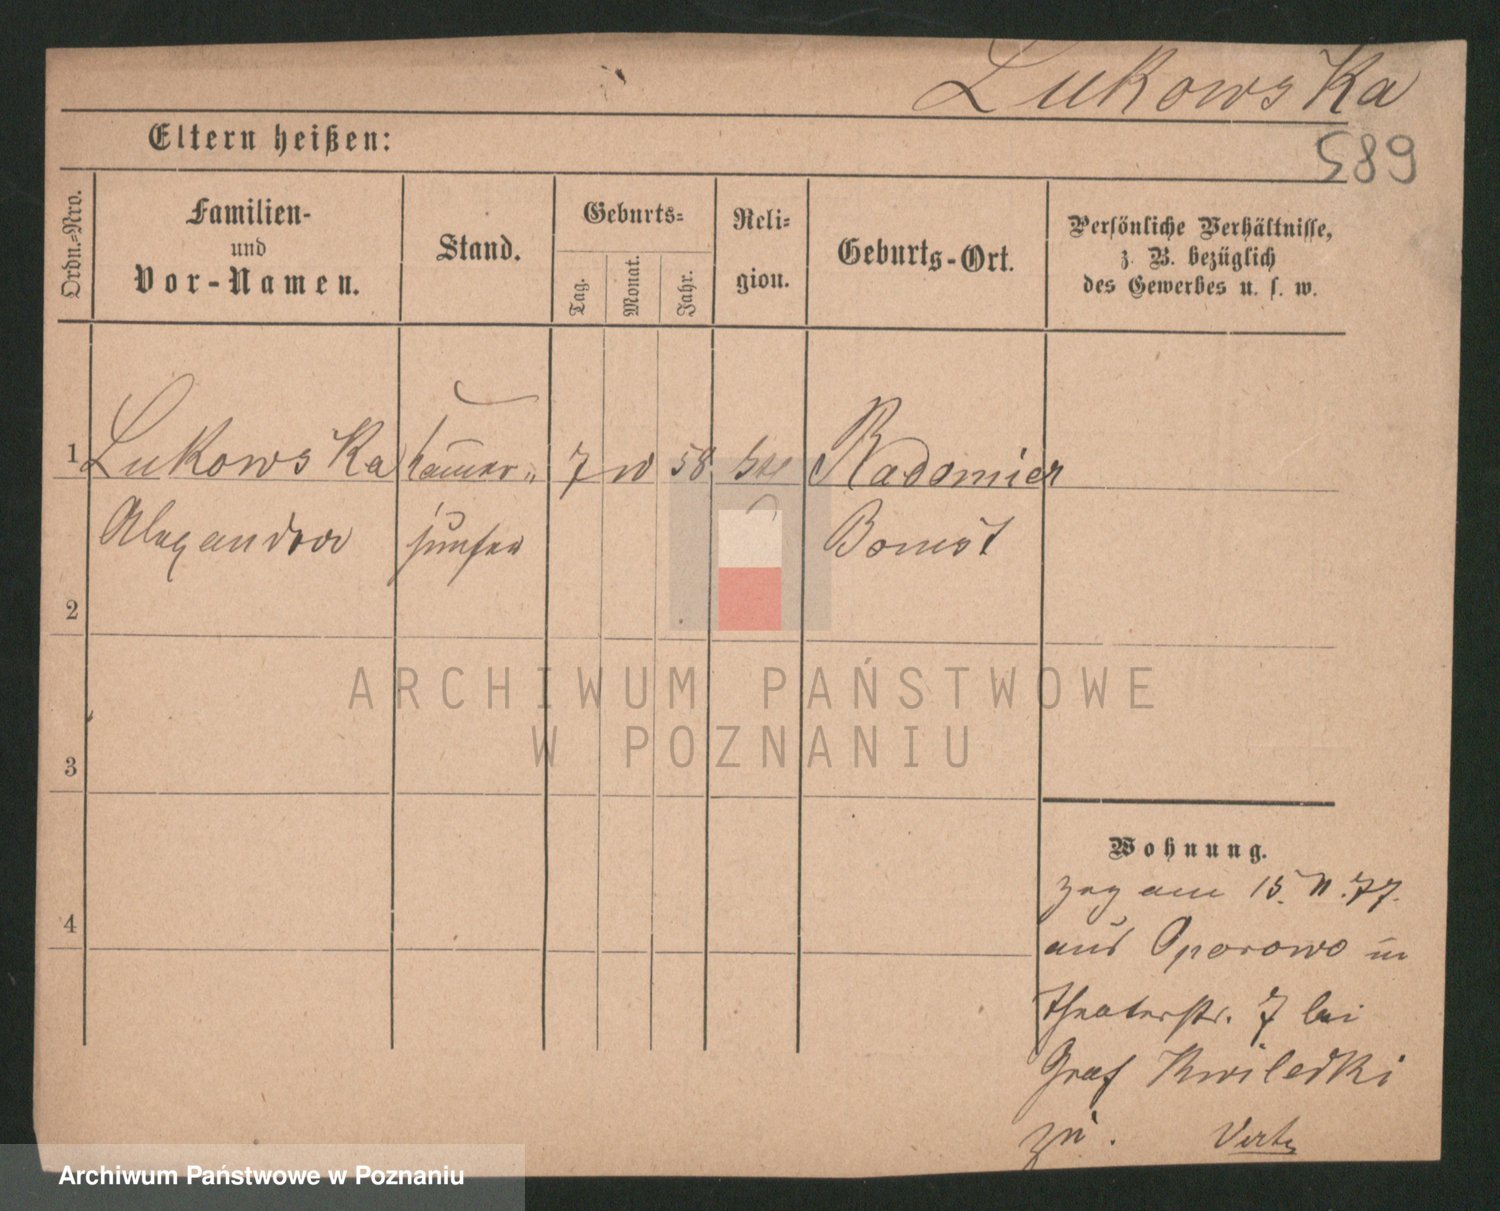 Lukowska
589
Eltern heißen:
Ordn.-Nro.
Familien-
und
Vor-Namen.
Stand.
Geburts-
Tag.
Monat.
Jahr.
Reli-
gion.
Geburts-Ort.
Persönliche Verhältnisse,
z. B. bezüglich
des Gewerbes u. s. w.
1 Lukowska 7 58 Radomier
Alexandra jungfer Bomst
2
3
4
Wohnung.
zog am 15. 77.
aus Oporowo in
Theaterstr. 7 bei
Graf Kwiledki
zu.
ARCHIWUM PAŃSTWOWE
W POZNANIU
Archiwum Państwowe w Poznaniu